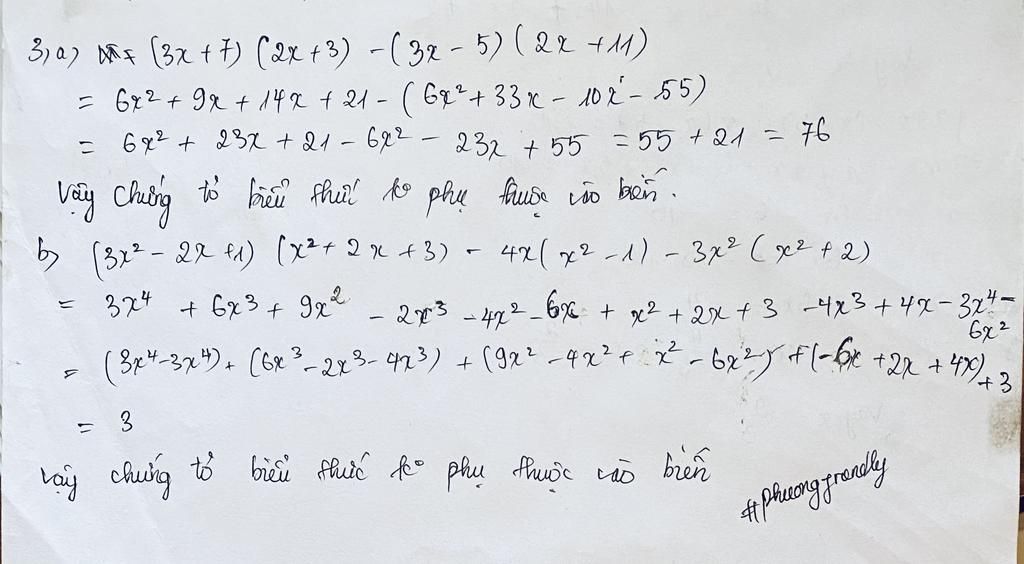 3, a) (3x + 7) (2x + 3) - (3x - 5) ( 2x + 11)
= 6x² + 9x + 14x + 21 - ( 6x² + 33x - 10x - 55)
= 6x² + 23x + 21 - 6x² - 23x + 55 = 55 + 21 = 76
Vậy chứng tỏ biểu thức ko phụ thuộc vào biến.
b) (3x² - 2x + 1) (x² + 2x + 3) - 4x( x² - 1) - 3x² ( x² + 2)
= 3x⁴ + 6x³ + 9x² - 2x³ - 4x² - 6x + x² + 2x + 3 - 4x³ + 4x - 3x⁴ -
6x²
= (3x⁴ - 3x⁴) + (6x³ - 2x³ - 4x³) + (9x² - 4x² + x² - 6x²) + (-6x + 2x + 4x)
+ 3
= 3
Vậy chứng tỏ biểu thức ko phụ thuộc vào biến